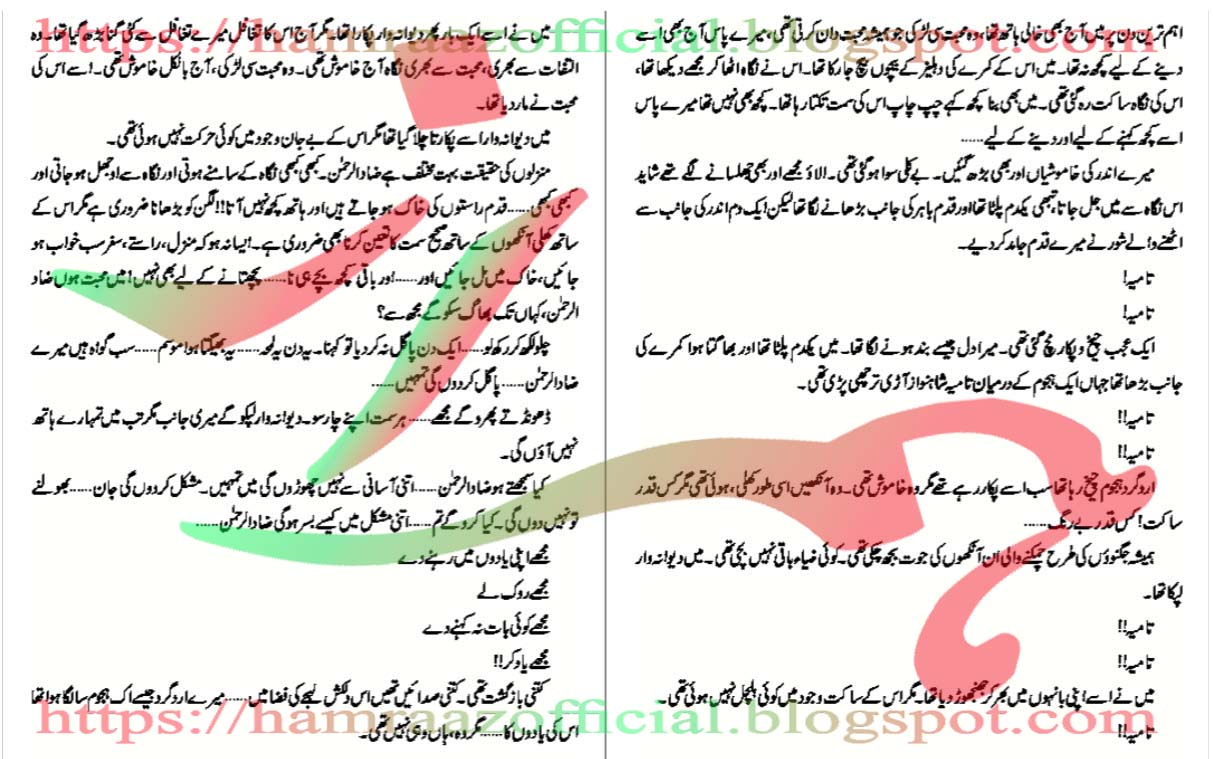 https://hamraazofficial.blogspot.com
اہم ترین دن پر میں آج بھی خالی ہاتھ تھا، وہ محبت سی لڑکی جو ہمیشہ محبت دان کرتی تھی، میرے پاس آج بھی اسے
دینے کے لیے کچھ نہ تھا۔ میں اس کے کمرے کی دہلیز کے بیچوں بیچ جا رکا تھا۔ اس نے نگاہ اٹھا کر مجھے دیکھا تھا،
اس کی نگاہ ساکت رہ گئی تھی۔ میں بھی بنا کچھ کہے چپ چاپ اس کی سمت تکتا رہا تھا۔ کچھ بھی نہیں تھا میرے پاس
اسے کچھ کہنے کے لیے اور دینے کے لیے......
میرے اندر کی خاموشیاں اور بھی بڑھ گئیں۔ بے کلی سوا ہو گئی تھی۔ الاؤ مجھے اور بھی جھلسانے لگے تھے شاید
اس نگاہ سے میں جل جاتا، تبھی یکدم پلٹا تھا اور قدم باہر کی جانب بڑھانے لگا تھا لیکن ایک دم اندر کی جانب سے
اٹھنے والے شور نے میرے قدم جامد کر دیے۔
تامیہ!
تامیہ!
ایک عجب چیخ و پکار مچ گئی تھی۔ میرا دل جیسے بند ہونے لگا تھا۔ میں یکدم پلٹا تھا اور بھاگتا ہوا کمرے کی
جانب بڑھا تھا جہاں ایک ہجوم کے درمیان تامیہ شاہنواز آڑی ترچھی پڑی تھی۔
تامیہ!!
تامیہ!!
اردگرد ہجوم چیخ رہا تھا سب اسے پکار رہے تھے مگر وہ خاموش تھی۔ وہ آنکھیں اسی طور کھلی، ہوئی تھی مگر کس قدر
ساکت! کس قدر بے رنگ......
ہمیشہ جگنوؤں کی طرح چمکنے والی ان آنکھوں کی جوت بجھ چکی تھی۔ کوئی ضیاء باقی نہیں بچی تھی۔ میں دیوانہ وار
لپکا تھا۔
تامیہ!!
تامیہ!!
میں نے اسے اپنی بانہوں میں بھر کر جھنجھوڑ دیا تھا۔ مگر اس کے ساکت وجود میں کوئی ہلچل نہیں ہوئی تھی۔
تامیہ!!
میں نے اسے ایک بار پھر دیوانہ وار پکارا تھا۔ مگر آج اس کا تغافل میرے تغافل سے کئی گنا بڑھ گیا تھا۔ وہ
التفات سے بھری، محبت سے بھری نگاہ آج خاموش تھی۔ وہ محبت سی لڑکی، آج بالکل خاموش تھی۔ اسے اس کی
محبت نے مار دیا تھا۔
میں دیوانہ وار اسے پکارتا چلا گیا تھا مگر اس کے بے جان وجود میں کوئی حرکت نہیں ہوئی تھی۔
منزلوں کی حقیقت بہت مختلف ہے ضاد الرحمٰن۔ کبھی کبھی نگاہ کے سامنے ہوتی اور نگاہ سے اوجھل ہو جاتی اور
کبھی کبھی...... قدم راستوں کی خاک ہو جاتے ہیں اور ہاتھ کچھ نہیں آتا!! لگن کو بڑھانا ضروری ہے مگر اس کے
ساتھ کھلی آنکھوں کے ساتھ صحیح سمت کا تعین کرنا بھی ضروری ہے۔ ایسا نہ ہو کہ منزل، راستے، سفر سب خواب ہو
جائیں، خاک میں مل جائیں اور...... اور باقی کچھ بچے ہی نا...... پچھتانے کے لیے بھی نہیں! میں محبت ہوں ضاد
الرحمٰن، کہاں تک بھاگ سکو گے مجھ سے؟
چلو لکھ کر رکھ لو...... ایک دن پاگل نہ کر دیا تو کہنا۔ یہ دن یہ لمحہ...... یہ بھیگتا ہوا موسم...... سب گواہ ہیں میرے
ضاد الرحمٰن...... پاگل کر دوں گی تمہیں......
ڈھونڈتے پھرو گے مجھے...... ہر سمت اپنے چار سو۔ دیوانہ وار لپکو گے میری جانب مگر تب میں تمہارے ہاتھ
نہیں آؤں گی۔
کیا سمجھتے ہو ضاد الرحمٰن...... اتنی آسانی سے نہیں چھوڑوں گی میں تمہیں۔ مشکل کر دوں گی جان...... بھولنے
تو نہیں دوں گی۔ کیا کرو گے تم...... اتنی مشکل میں کیسے بسر ہو گی ضاد الرحمٰن......
مجھے اپنی یادوں میں رہنے دے
مجھے روک لے
مجھے کوئی بات نہ کہنے دے
مجھے یاد کر!!
کتنی بازگشت تھی۔ کتنی صدائیں تھیں اس دلکش لہجے کی فضا میں...... میرے اردگرد جیسے اک ہجوم سا لگا ہوا تھا
اس کی یادوں کا...... مگر وہ، ہاں وہی نہیں تھی۔
https://hamraazofficial.blogspot.com